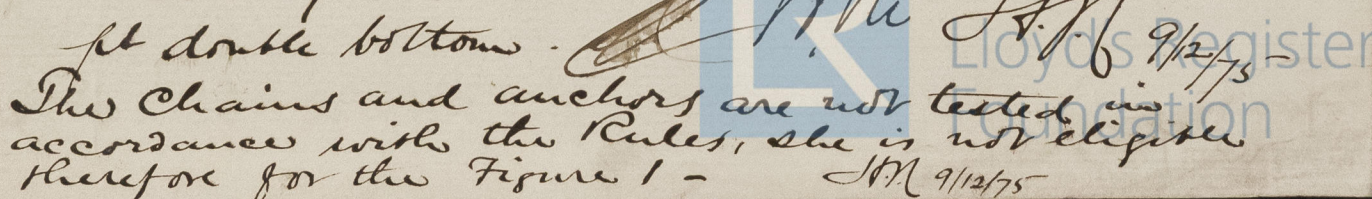 ft double bottom. 9/12/75
The Chains and anchors are not tested in
accordance with the Rules, she is not eligible
therefore for the Figure 1 - 9/12/75
Lloyd's Register
Foundation